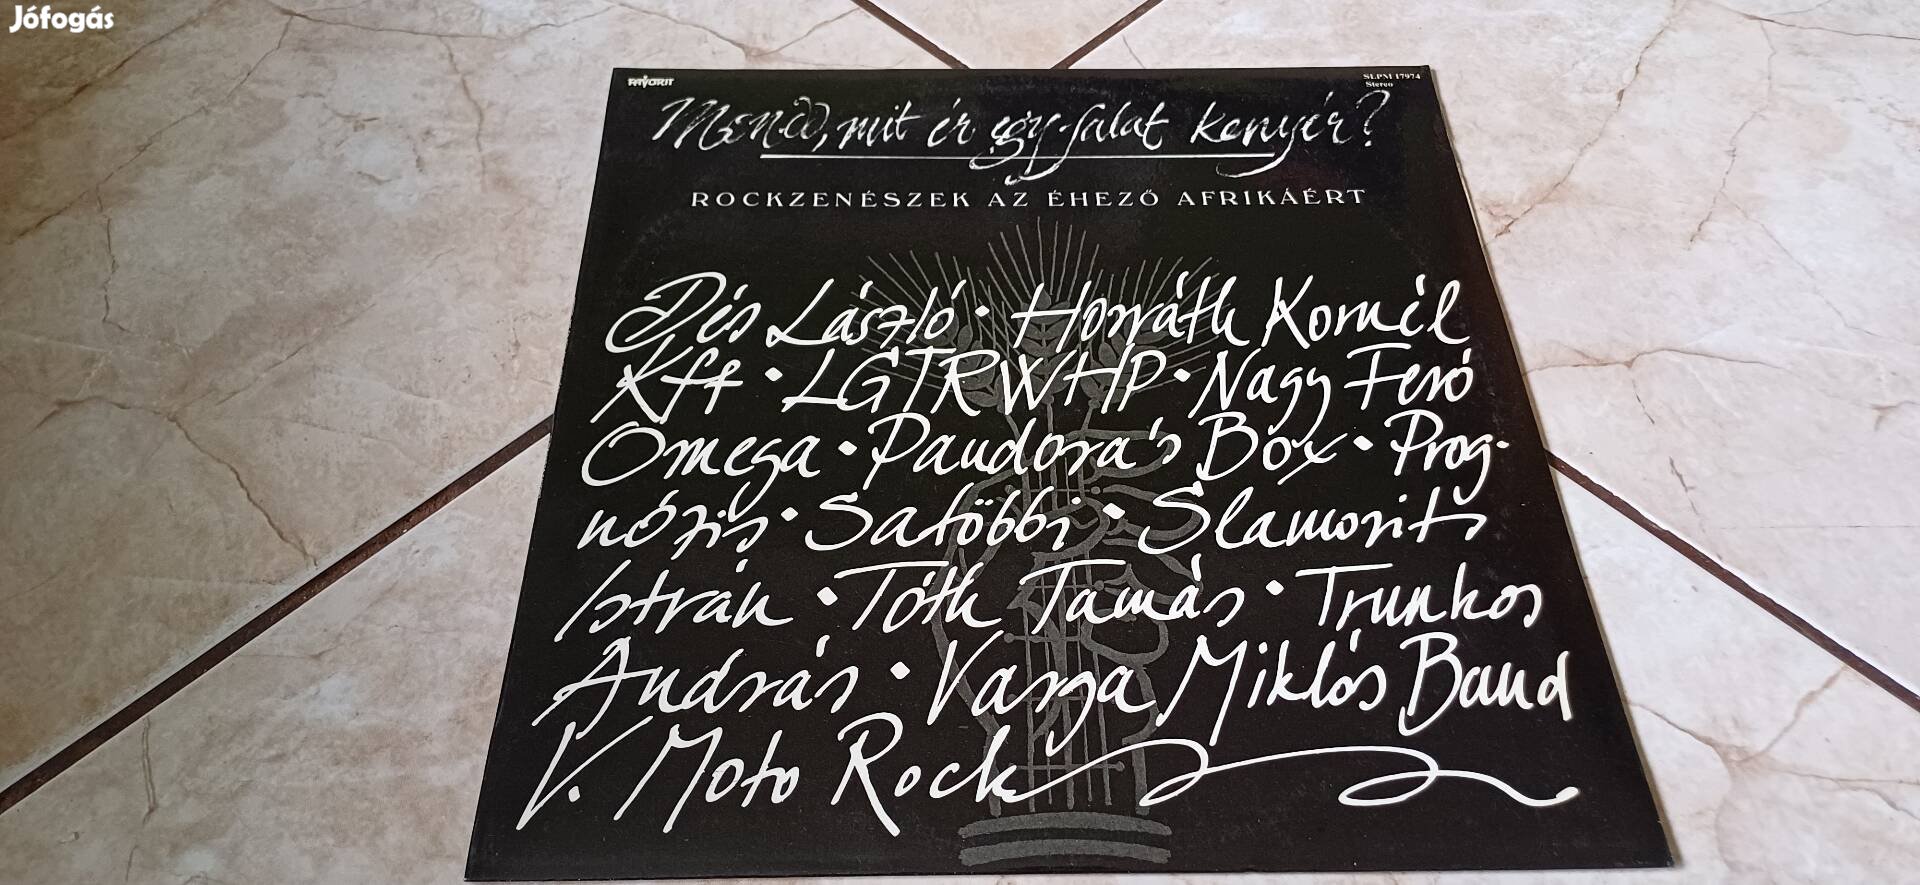 Jófogás
FAVORIT
SLPM 17974
Stereo
Mondd, mit ér egy falat kenyér?
ROCKZENÉSZEK AZ ÉHEZŐ AFRIKÁÉRT
Dés László • Horváth Kornél
Kff • LGTRWHP • Nagy Feró
Omega • Pandora's Box • Prog-
nózis • Satöbbi • Slamovits
István • Tóth Tamás • Trunkos
András • Varga Miklós Band
V. Moto Rock